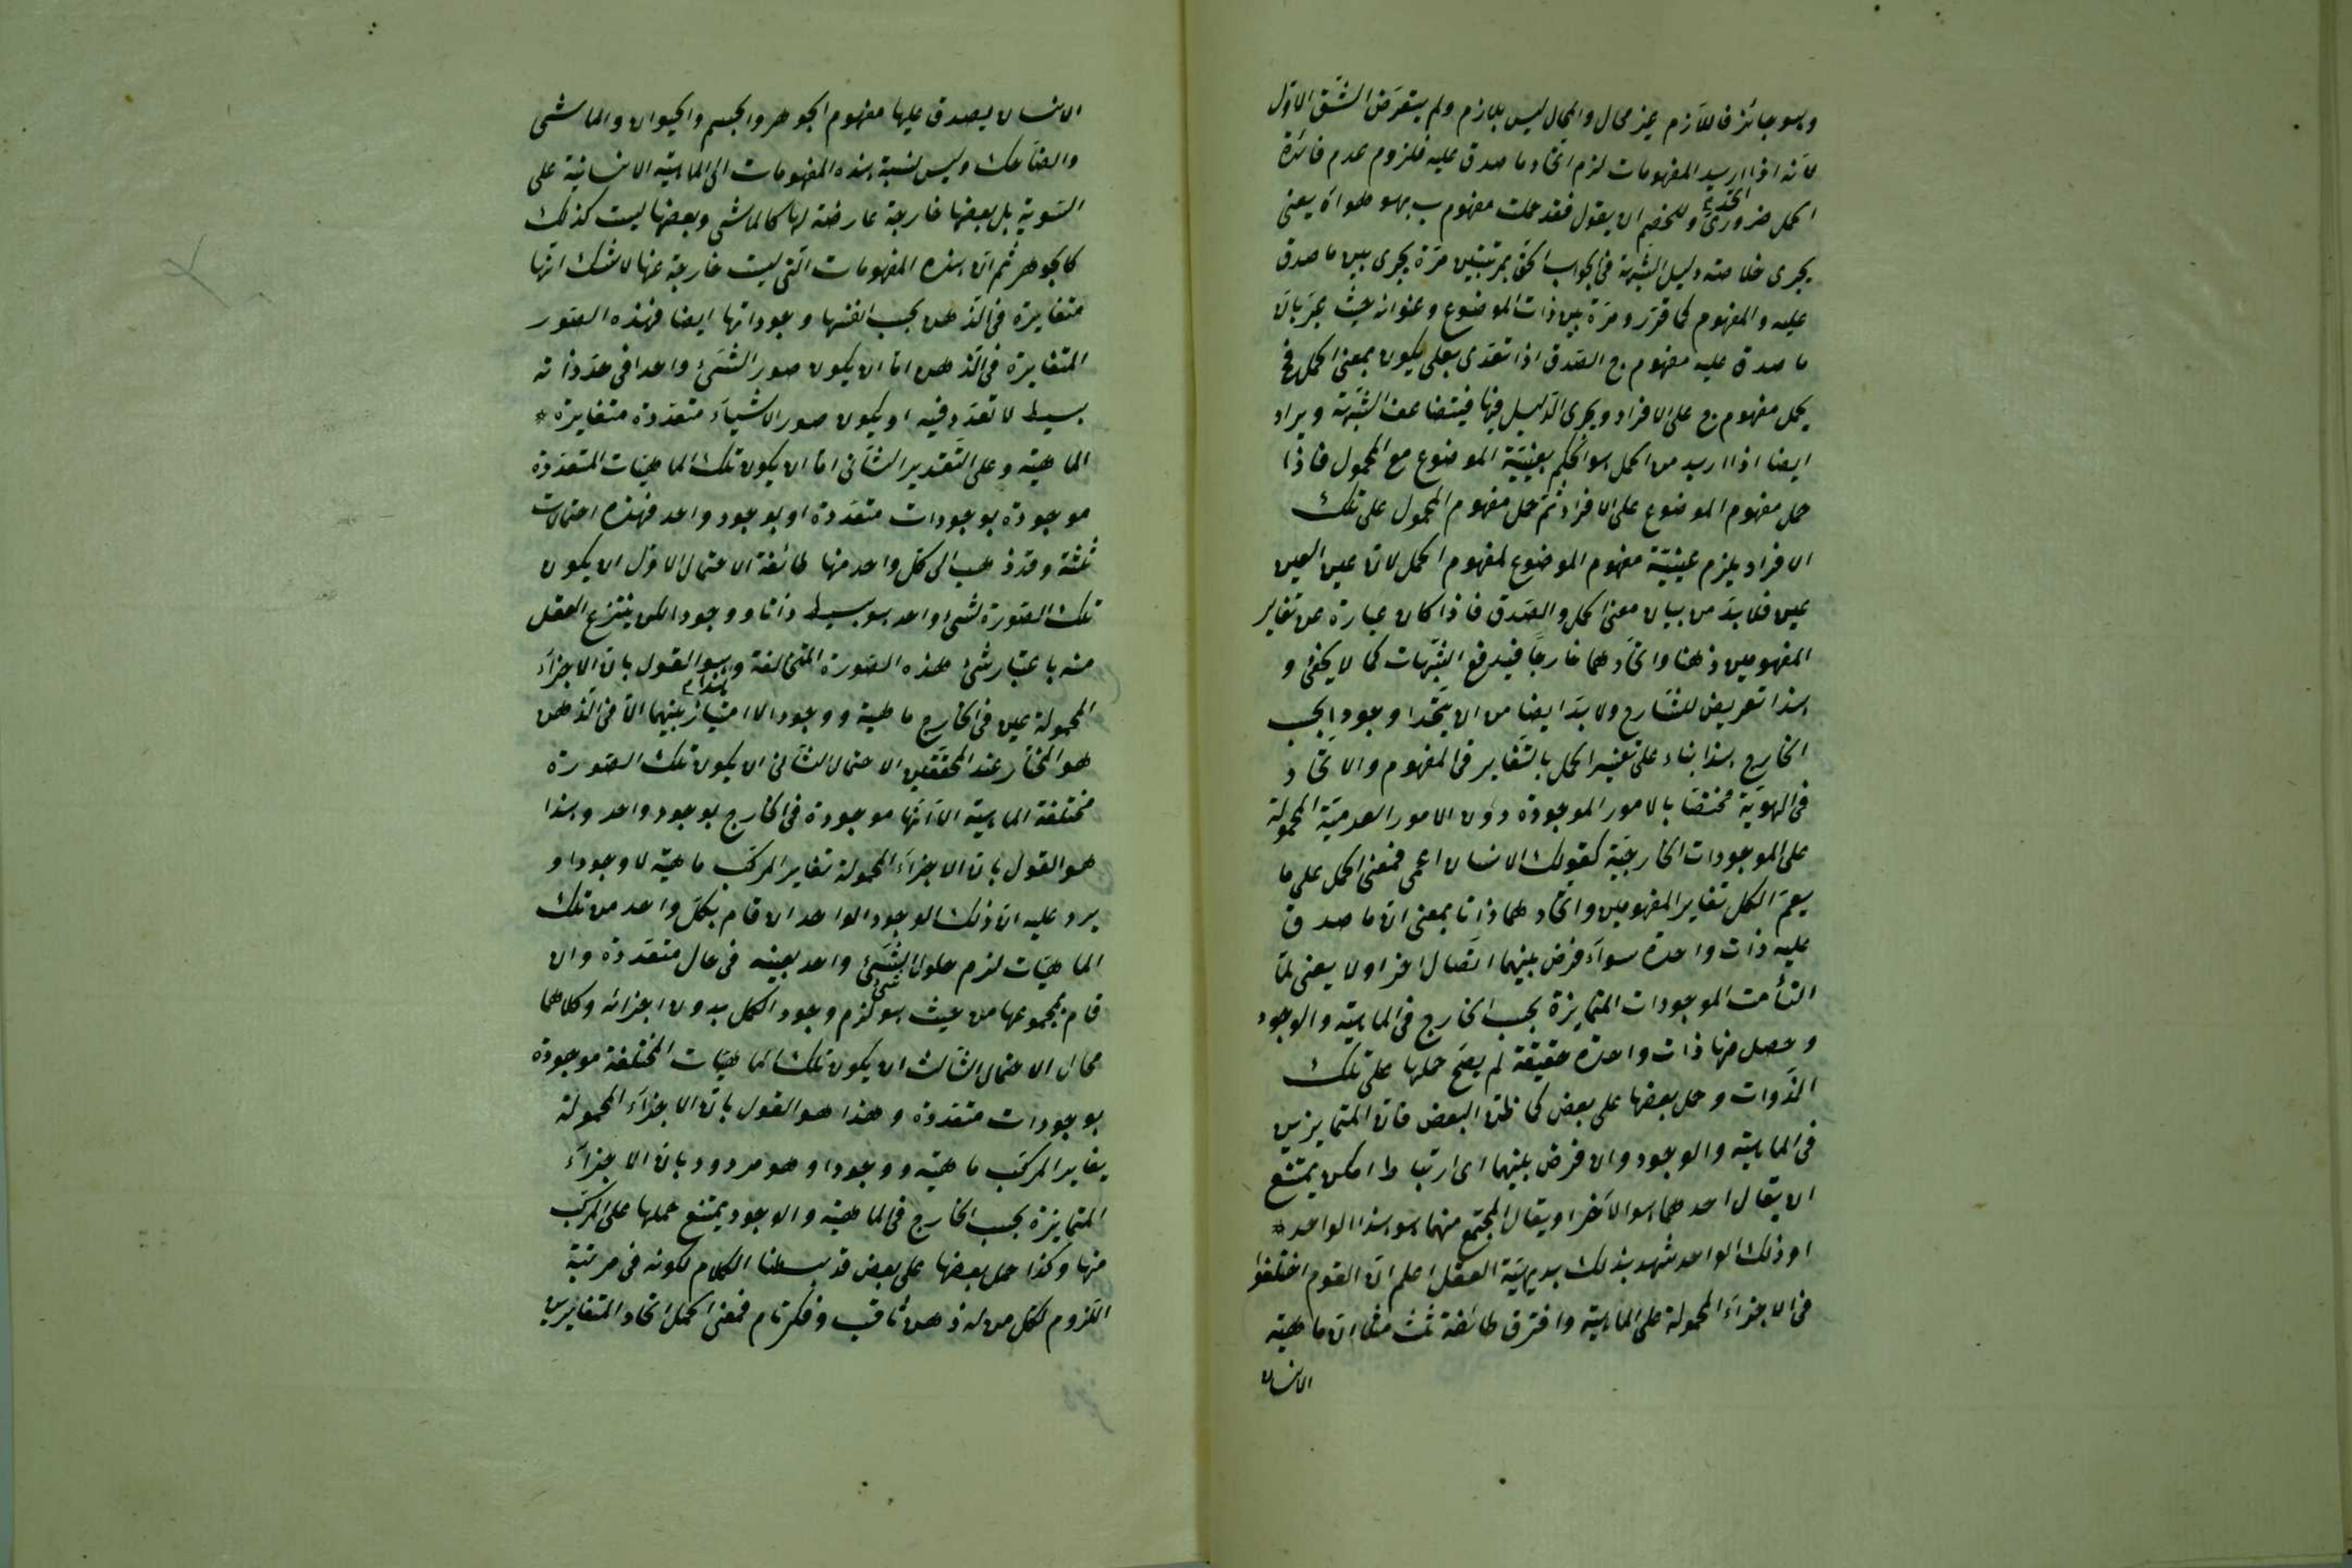 وهو جائز فاللازم غير محال والمحال ليس بلازم ولم يتعرض الشق الاول
لانه اذا اريد المفهومات لزم اتحاد ما صدق عليه فلزوم عدم فائدة
الحمل ضرورى وللخصم ان يقول فقد حملت مفهوم ب بهو هواه يعنى
يجرى خلاصته دليل الشبهة فى الجواب الحق بمرتبتين مرة يجرى بين ما صدق
عليه والمفهوم كما قرر ومرة بين ذات الموضوع وعنوانه حيث عبر بان
ما صدق عليه مفهوم ج الصدق اذا تعدى بعلى يكون بمعنى الحمل فح
يحمل مفهوم ج على الافراد ويجرى الدليل فيها فيتضاعف الشبهة ويراد
ايضا اذا اريد من الحمل هو الحكم بعينية الموضوع مع المحمول فاذا
حمل مفهوم الموضوع على الافراد ثم حمل مفهوم المحمول على تلك
الافراد يلزم عينية مفهوم الموضوع لمفهوم الحمل لان عين العين
عين فلا بد من بيان معنى الحمل والصدق فاذا كان عبارة عن تغاير
المفهومين ذهنا واتحادهما خارجا فيدفع الشبهات كما لا يخفى و
هذا تعريض للشارح ولا بد ايضا من ان يتحدا وجودا بحسب
الخارج هذا بناء على تفسير الحمل بالتغاير فى المفهوم والاتحاد
فى الهوية مختصا بالامور الموجودة دون الامور العدمية المحمولة
على الموجودات الخارجية كقولك الانسان اعمى فمعنى الحمل على ما
يعم الكل تغاير المفهومين واتحادهما ذاتا بمعنى ان ما صدق
عليه ذات واحدة سواء فرض بينهما اتصال اخر اولا يعنى لما
التأمت الموجودات المتمايزة بحسب الخارج فى الماهية والوجود
وحصل منها ذات واحدة حقيقة لم يصح حملها على تلك
الذوات وحمل بعضها على بعض كما ظن البعض فان المتمايزين
فى الماهية والوجود وان فرض بينهما اى ارتباط امكن يمتنع
ان يقال احدهما هو الاخر او يقال المجتمع منهما هو هذا الواحد *
او ذلك الواحد شهد بذلك بديهية العقل اعلم ان القوم اختلفوا
فى الاجزاء المحمولة على الماهية وافترق طائفة ثلث مثلا ان ماهية
الانسان
الانسان يصدق عليها مفهوم الجوهر والجسم والحيوان والماشى
والضاحك وليس نسبة هذه المفهومات الى الماهية الانسانية على
السوية بل بعضها خارجة عارضة لها كالماشى وبعضها ليست كذلك
كالجوهر ثم ان هذه المفهومات التى ليست خارجة عنها لا شك انها
متغايرة فى الذهن بحسب انفسها وجوداتها ايضا فهذه الصور
المتغايرة فى الذهن اما ان يكون صور الشىء واحد فى حد ذاته
بسيط لا تعدد فيه او يكون صور الاشياء متعددة متغايرة *
الماهية وعلى التقدير الثانى اما ان يكون تلك الماهيات المتعددة
موجودة بوجودات متعددة او بوجود واحد فهذه احتمالات
ثلثة وقد ذهب الى كل واحد منها طائفة الاحتمال الاول ان يكون
تلك الصورة لشىء واحد هو بسيط ذاتا ووجودا لكن ينتزع العقل
منه باعتبار شىء هذه الصورة المتخالفة وهو القول بان الاجزاء
المحمولة عين فى الخارج ماهية ووجودا لا امتياز بينهما الا فى الذهن
هو المختار عند المحققين الاحتمال الثانى ان يكون تلك الصورة
مختلفة الماهية الا انها موجودة فى الخارج بوجود واحد وهذا
هو القول بان الاجزاء المحمولة تغاير المركب ماهية لا وجودا و
يرد عليه ان ذلك الوجود الواحد ان قام بكل واحد من تلك
الماهيات لزم حلول الشىء واحد بعينه فى محال متعددة وان
قام بمجموعها من حيث هو لزم وجود الكل بدون اجزائه وكلاهما
محال الاحتمال الثالث ان يكون تلك الماهيات المختلفة موجودة
بوجودات متعددة وهذا هو القول بان الاجزاء المحمولة
يغاير المركب ماهية ووجودا وهو مردود بان الاجزاء
المتمايزة بحسب الخارج فى الماهية والوجود يمتنع حملها على المركب
منها وكذا حمل بعضها على بعض قد بسطنا الكلام لكونه فى مرتبة
اللزوم لكل من له ذهن ثاقب وفكر تام فمعنى الحمل اتحاد المتغايرين